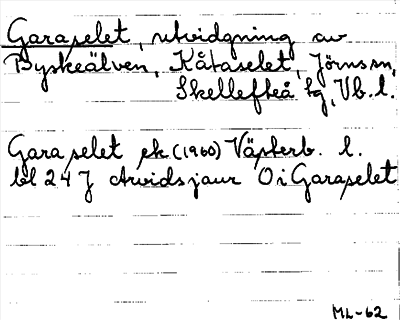 Garaselet, utvidgning av
Byskeälven, Kåtaselet, Jörns sn,
Skellefteå tg, Vb. l.
Garaselet ek (1960) Västerb. l.
bl 24 J Arvidsjaur O i Garaselet
ML-62